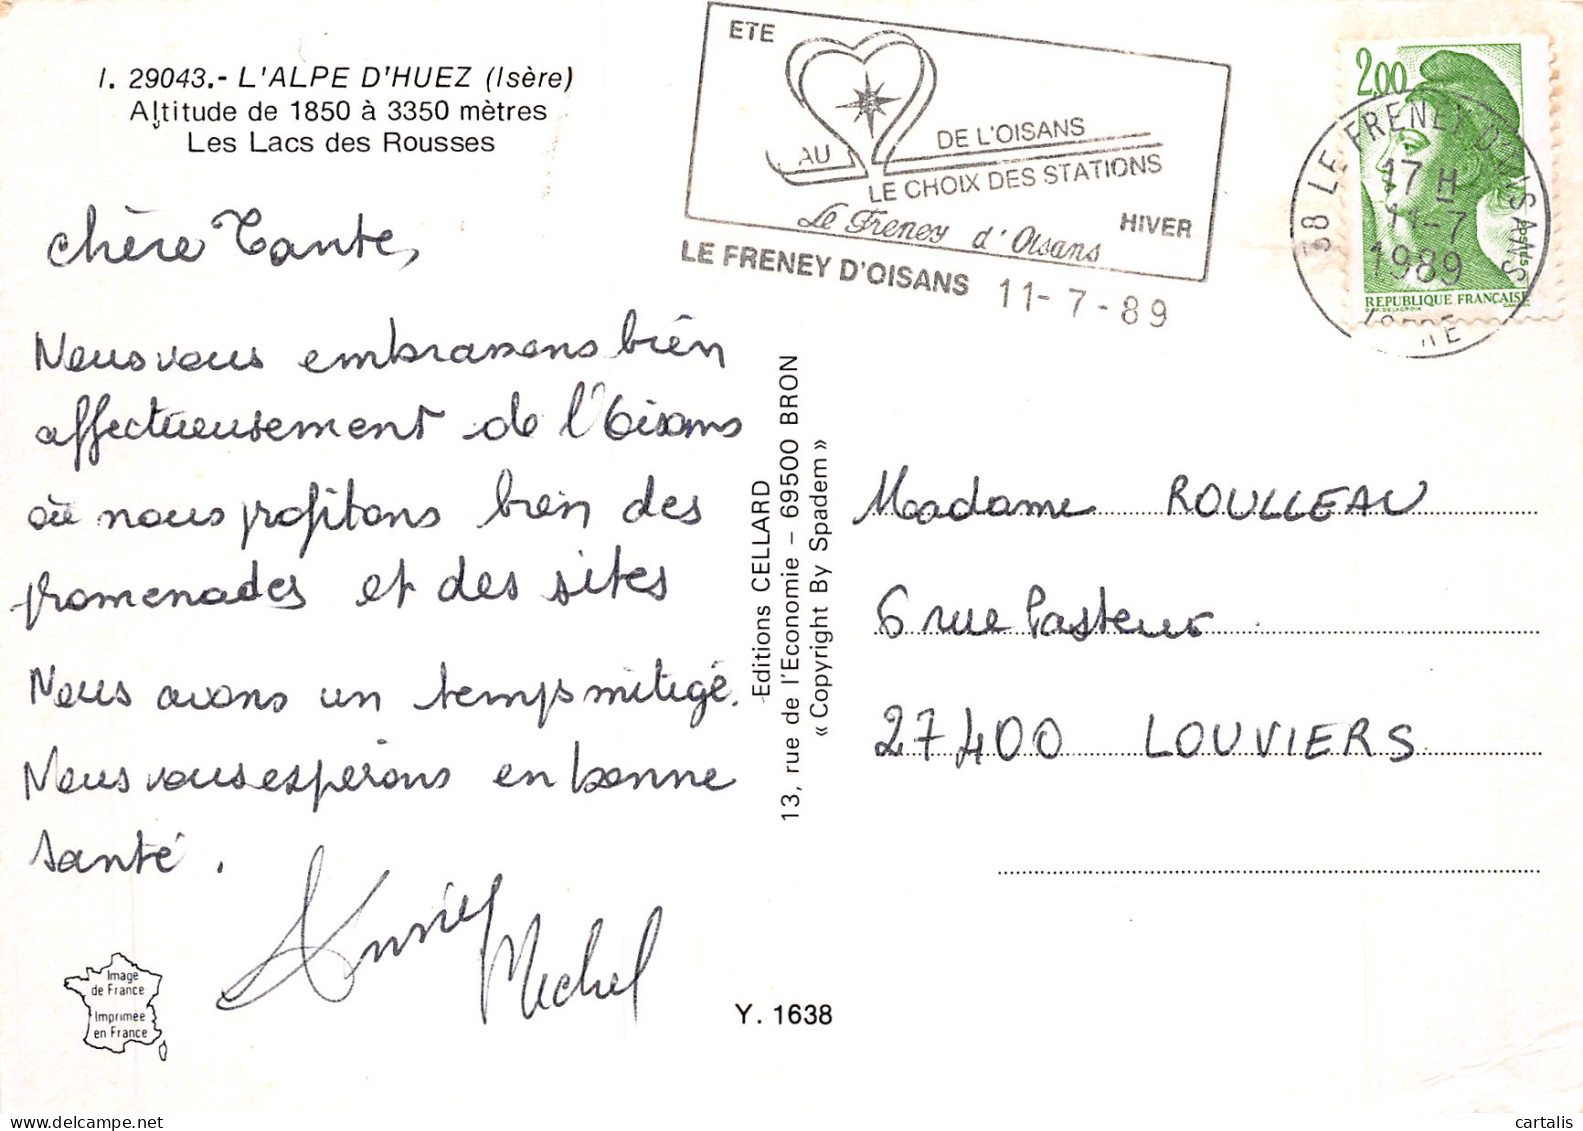 I. 29043.- L'ALPE D'HUEZ (Isère)
Altitude de 1850 à 3350 mètres
Les Lacs des Rousses
chère Tante,
Nous vous embrassons bien
affectueusement de l'Oisans
où nous profitons bien des
promenades et des sites
Nous avons un temps mitigé.
Nous vous esperons en bonne
santé.
Annie Michel
Image
de France
Imprimée
en France
ETE
AU
DE L'OISANS
LE CHOIX DES STATIONS
Le Freney d'Oisans
HIVER
LE FRENEY D'OISANS 11-7-89
2,00
REPUBLIQUE FRANÇAISE
postes
38 LE FRENEY D'OISANS
17 H
11-7
1989
ISERE
Editions CELLARD
13, rue de l'Economie - 69500 BRON
« Copyright By Spadem »
Madame ROULLEAU
6 rue Pasteur
27400 LOUVIERS
Y. 1638
cartalis